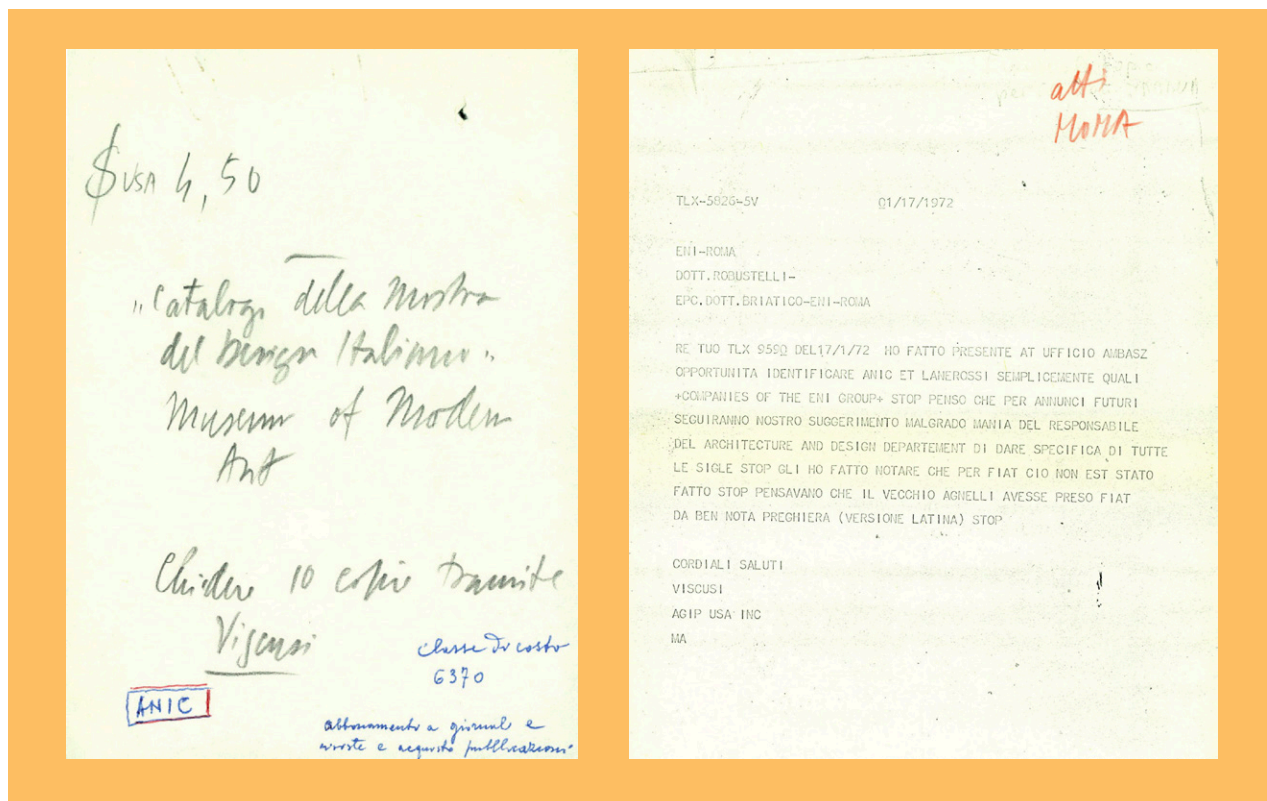 $ USA 4,50
"Catalogi della Mostra
del Design Italiano"
Museum of Modern
Art
Chiedere 10 copie tramite
Viscusi
classe di costo
6370
ANIC
abbonamento a giornali e
riviste e acquisto pubblicazioni
atti
MOMA
TLX-5826-5V 01/17/1972
ENI-ROMA
DOTT.ROBUSTELLI-
EPC.DOTT.BRIATICO-ENI-ROMA
RE TUO TLX 9590 DEL17/1/72 HO FATTO PRESENTE AT UFFICIO AMBASZ
OPPORTUNITA IDENTIFICARE ANIC ET LANEROSSI SEMPLICEMENTE QUALI
+COMPANIES OF THE ENI GROUP+ STOP PENSO CHE PER ANNUNCI FUTURI
SEGUIRANNO NOSTRO SUGGERIMENTO MALGRADO MANIA DEL RESPONSABILE
DEL ARCHITECTURE AND DESIGN DEPARTEMENT DI DARE SPECIFICA DI TUTTE
LE SIGLE STOP GLI HO FATTO NOTARE CHE PER FIAT CIO NON EST STATO
FATTO STOP PENSAVANO CHE IL VECCHIO AGNELLI AVESSE PRESO FIAT
DA BEN NOTA PREGHIERA (VERSIONE LATINA) STOP
CORDIALI SALUTI
VISCUSI
AGIP USA INC
MA